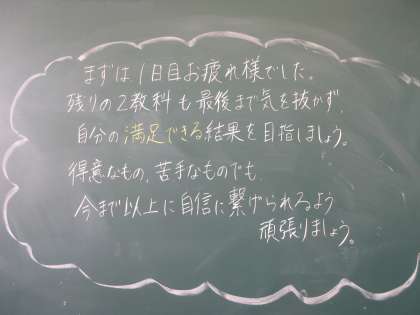 まずは1日目お疲れ様でした。
残りの2教科も最後まで気を抜かず、
自分の満足できる結果を目指しましょう。
得意なもの、苦手なものでも、
今まで以上に自信に繋げられるよう
頑張りましょう。